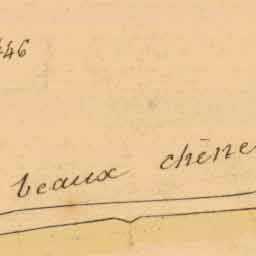 446
beaux chêne